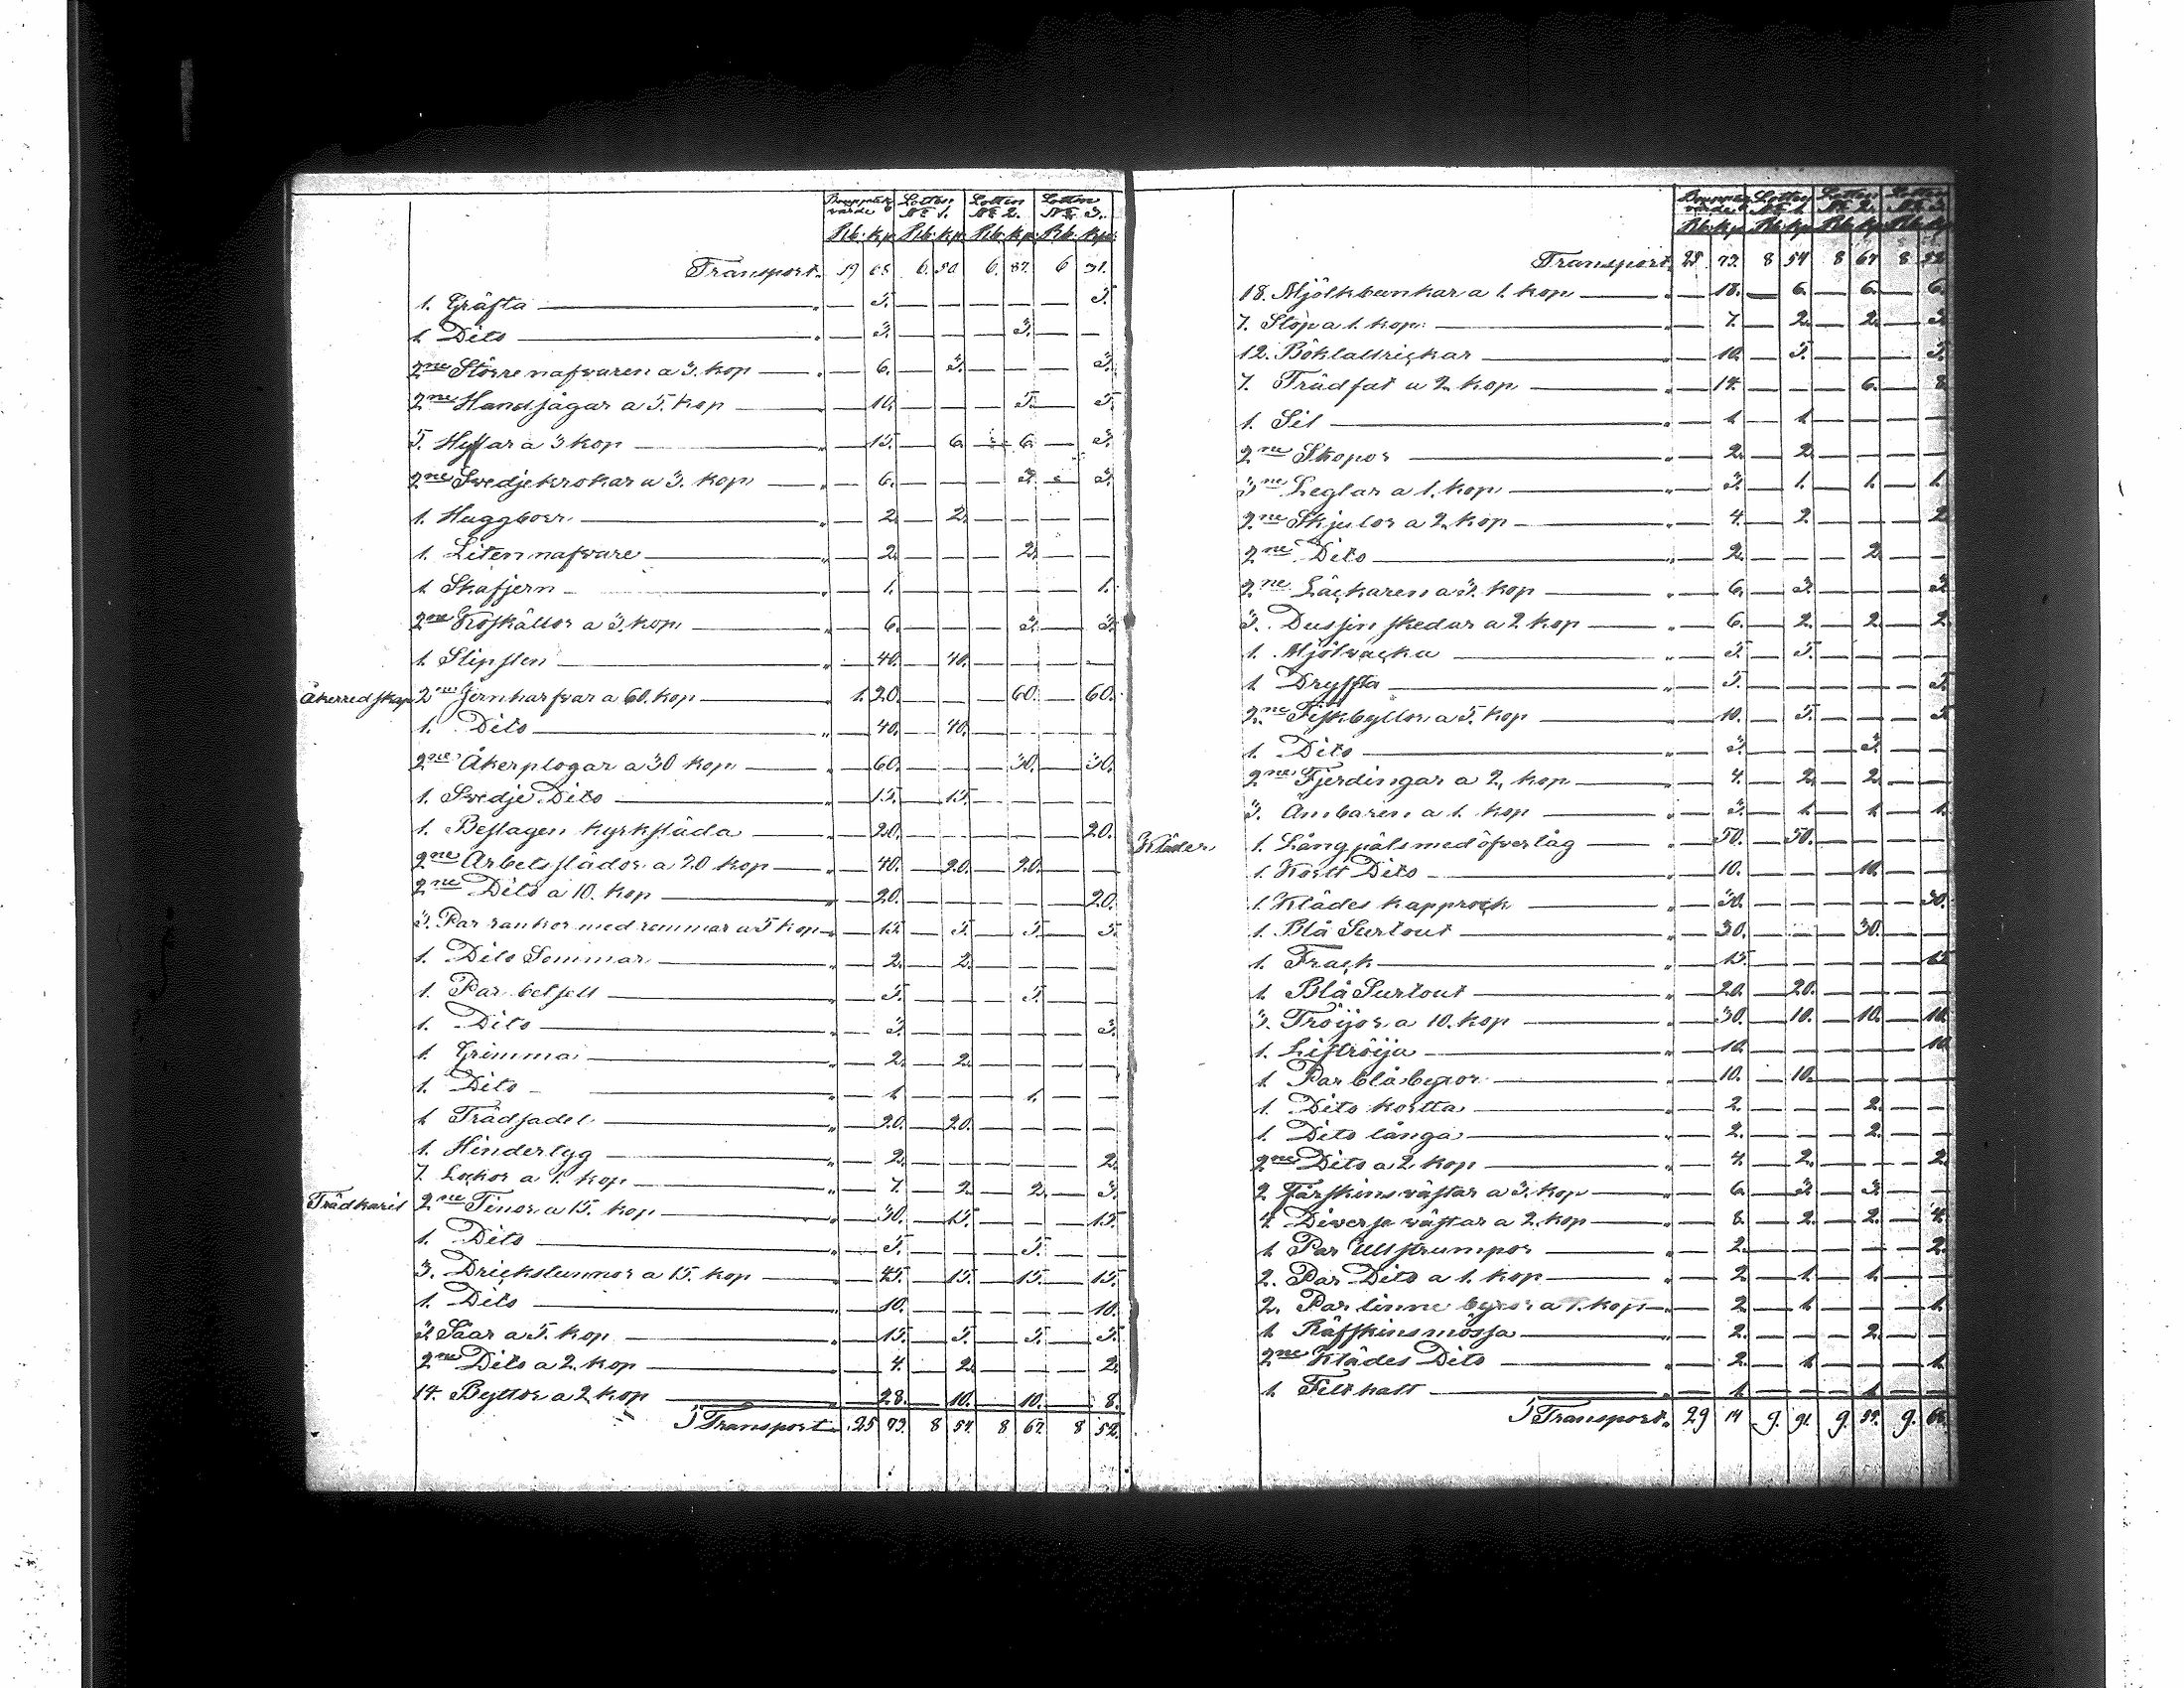 Boupptek. värde Lotten Nr 1. Lotten Nr 2. Lotten Nr 3.
Rb. kp. Rb. kp. Rb. kp. Rb. kp.
Transport. 19 68. 6. 50. 6. 87. 6 31.
1. Gräfta — 5. — — — — — 5.
1. Dito — 3. — — — 3. — —
2ne Större nafvaren a 3. kop — 6. — 3. — — — 3.
2ne Handsågar a 5. kop — 10. — — — 5. — 5.
5. Hyflar a 3 kop — 15. — 6. — 6. — 3.
2ne Svedjekrokar a 3. kop — 6. — — — 3. — 3.
1. Huggboor — 2. — 2. — — — —
1. Liten nafvare — 2. — — — 2. — —
1. Skafjern — 1. — — — — — 1.
2ne Koskällor a 3. kop — 6. — — — 3. — 3.
1. Slipsten — 40. — 40. — — — —
Åkerredskap 2ne Jernharfvar a 60. kop 1. 20. — — — 60. — 60.
1. Dito — 40. — 40. — — — —
2ne Åkerplogar a 30 kop — 60. — — — 30. — 30.
1. Svedje Dito — 15. — 15. — — — —
1. Beslagen kyrksläda — 20. — — — — — 20.
2ne Arbetsslädor a 20 kop — 40. — 20. — 20. — —
2ne Dito a 10. kop — 20. — — — — — 20.
3. Par rankor med remmar a 5 kop — 15. — 5. — 5. — 5.
1. Dito Sommar — 2. — 2. — — — —
1. Par betsell — 5. — — — 5. — —
1. Dito — 3. — — — — — 3.
1. Grimma — 2. — 2. — — — —
1. Dito — 1. — — — 1. — —
1. Trädsadel — 20. — 20. — — — —
1. Hindertyg — 2. — — — — — 2.
7. Lockor a 1. kop — 7. — 2. — 2. — 3.
Trädkäril 2ne Tinor a 15. kop — 30. — 15. — — — 15.
1. Dito — 5. — — — 5. — —
3. Drickstunnor a 15. kop — 45. — 15. — 15. — 15.
1. Dito — 10. — — — — — 10.
3. Såar a 5. kop — 15. — 5. — 5. — 5.
2ne Dito a 2. kop — 4. — 2. — — — 2.
14. Byttor a 2 kop — 28. — 10. — 10. — 8.
Transport. 25 73. 8 54. 8 67. 8 52.
Boupptek. värde Lotten Nr 1. Lotten Nr 2. Lotten Nr 3.
Rb. kp. Rb. kp. Rb. kp. Rb. kp.
Transport. 25 73. 8 54 8 67 8 52.
18. Mjölkbunkar a 1. kop — 18. — 6. — 6. — 6.
7. Stöp a 1. kop. — 7. — 2. — 2. — 3.
12. Böktallrickar — 10. — 5. — — — 5.
7. Trädfat a 2 kop — 14. — — — 6. — 8.
1. Sil — 1. — 1. — — — —
2ne Skopor — 2. — 2. — — — —
3ne Leglar a 1. kop — 3. — 1. — 1. — 1.
2ne Skjulor a 2. kop — 4. — 2. — — — 2.
2ne Dito — 2. — — — 2. — —
2ne Läckaren a 3. kop — 6. — 3. — — — 3.
3. Dussin skedar a 2 kop — 6. — 2. — 2. — 2.
1. Mjölvacka — 5. — 5. — — — —
1. Dryfta — 5. — — — — — 5.
2ne Fiskbyttor a 5. kop — 10. — 5. — — — 5.
1. Dito — 3. — — — 3. — —
2ne Fjerdingar a 2. kop — 4. — 2. — 2. — —
3. Ämbaren a 1. kop — 3. — 1. — 1. — 1.
Kläder 1. Långpäls med öfverlåg — 50. — 50. — — — —
1. Kortt Dito — 10. — — — 10. — —
1. Klädes kapprock — 30. — — — — — 30.
1. Blå Surtout — 30. — — — 30. — —
1. Frack — 15. — — — — — 15.
1. Blå Surtout — 20. — 20. — — — —
3. Tröijor a 10. kop — 30. — 10. — 10. — 10.
1. Liftröija — 10. — — — — — 10.
1. Par blå byxor — 10. — 10. — — — —
1. Dito kortta — 2. — — — 2. — —
1. Dito långa — 2. — — — 2. — —
2ne Dito a 2. kop — 4. — 2. — — — 2.
2 Fårskins västar a 3. kop — 6. — 3. — 3. — —
4. Diverse västar a 2. kop — 8. — 2. — 2. — 4.
1. Par Ullstrumpor — 2. — — — — — 2.
2. Par Dito a 1. kop — 2. — 1. — 1. — —
2. Par linne byxor a 1. kop — 2. — 1. — — — 1.
1. Räfskins mössa — 2. — — — 2. — —
2ne Klädes Dito — 2. — 1. — — — 1.
1. Filt hatt — 1. — — — 1. — —
Transport. 29 14 9. 91. 9. 59. 9. 64.